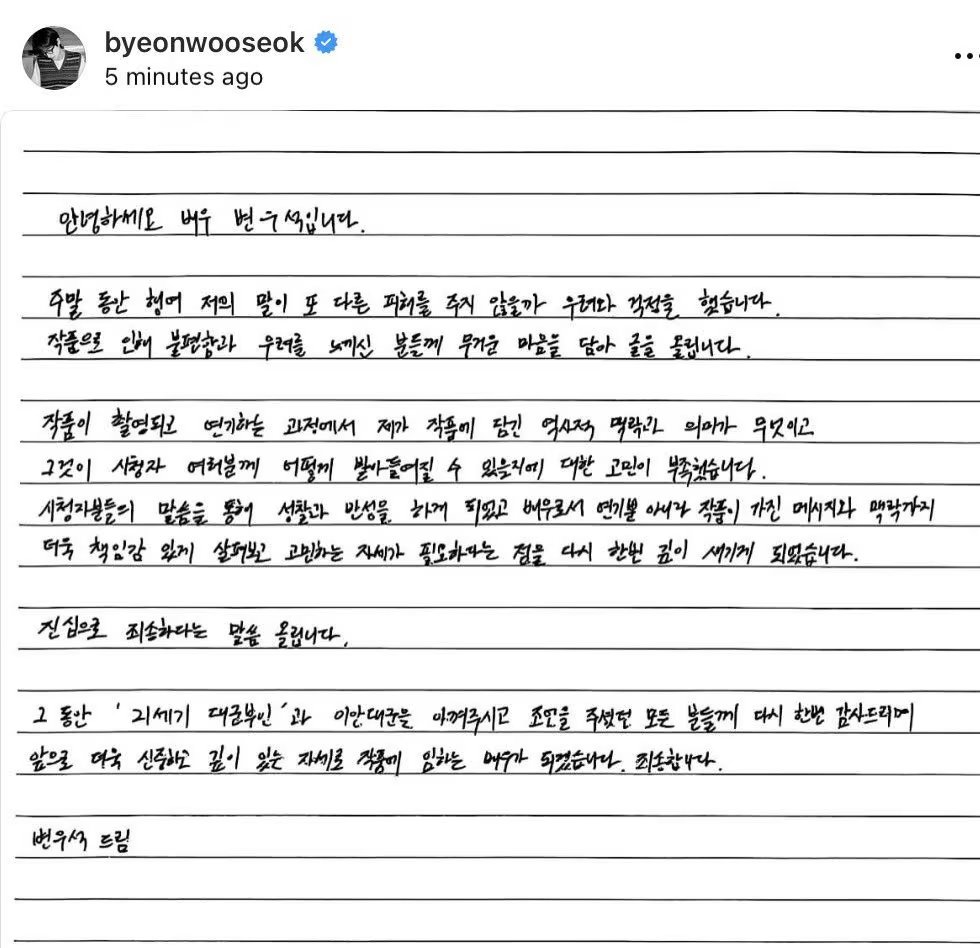 byeonwooseok
5 minutes ago
안녕하세요 배우 변우석입니다.
주말 동안 혹여 저의 말이 또 다른 피해를 주지 않을까 우려와 걱정을 했습니다.
작품으로 인해 불편함과 우려를 느끼신 분들께 무거운 마음을 담아 글을 올립니다.
작품이 촬영되고 연기하는 과정에서 제가 작품에 담긴 역사적 맥락과 의미가 무엇이고
그것이 시청자 여러분께 어떻게 받아들여질 수 있을지에 대한 고민이 부족했습니다.
시청자분들의 말씀을 통해 성찰과 반성을 하게 되었고 배우로서 연기뿐 아니라 작품이 가진 메시지와 맥락까지
더욱 책임감 있게 살펴보고 고민하는 자세가 필요하다는 점을 다시 한번 깊이 새기게 되었습니다.
진심으로 죄송하다는 말씀 올립니다.
그 동안 '21세기 대군부인'과 이안대군을 아껴주시고 조언을 주셨던 모든 분들께 다시 한번 감사드리며
앞으로 더욱 신중하고 깊이 있는 자세로 작품에 임하는 배우가 되겠습니다. 죄송합니다.
변우석 드림